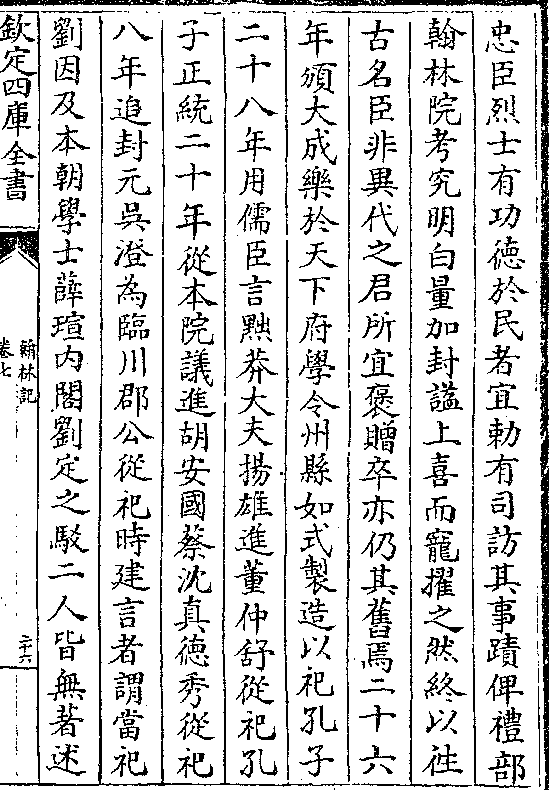 忠臣烈士有功德於民者宜勅有司訪其事蹟俾禮部
翰林院考究明白量加封諡上喜而寵擢之然終以往
古名臣非異代之君所宜褒贈卒亦仍其舊焉二十六
年頒大成樂於天下府學令州縣如式製造以祀孔子
二十八年用儒臣言黜莽大夫揚雄進董仲舒從祀孔
子正統二十年從本院議進胡安國蔡沈真德秀從祀
八年追封元吳澄為臨川郡公從祀時建言者謂當祀
劉因及本朝學士薛瑄内閣劉定之駁二人皆無著述
欽定四庫全書
翰林記
卷七
二十六